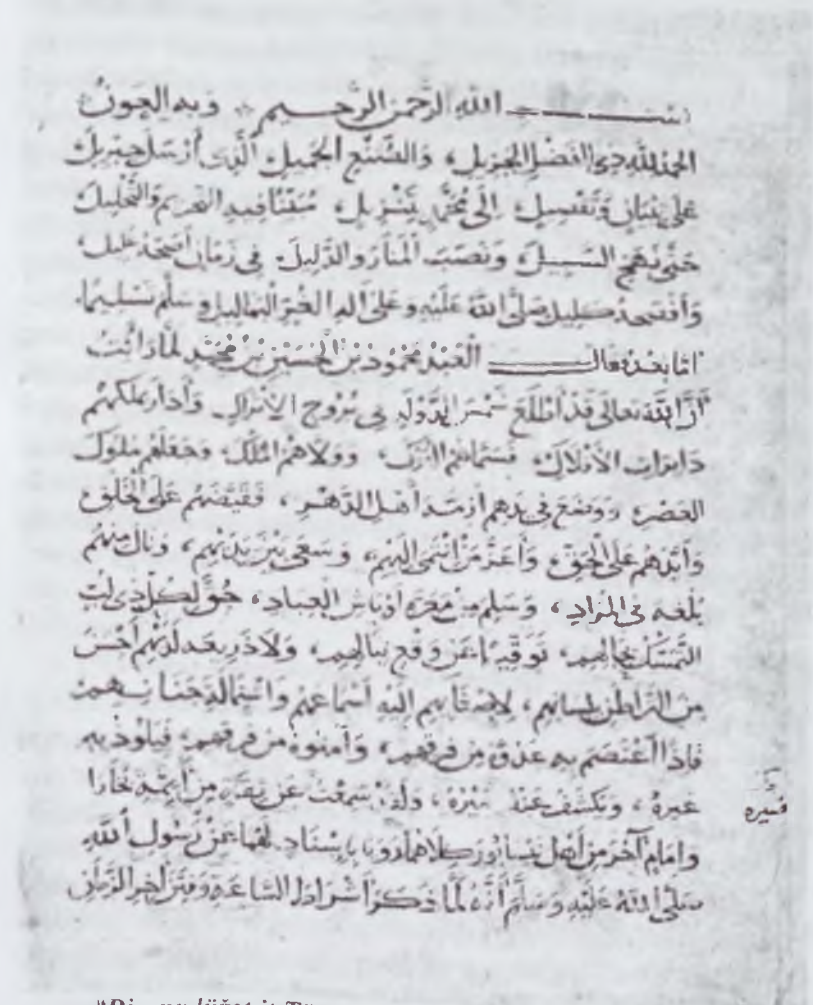 بسم الله الرحمن الرحيم وبه العون
الحمد لله ذي الفضل الجزيل، والصنع الجميل الذي أرسل جبريل
على تبيان وتفصيل، إلى محمد بتنزيل، مبينا فيه التحريم والتحليل
حتى نهج السبيل، ونصب المنار والدليل، في زمان أضحى عليل،
صلى الله عليه وعلى آله الغر البهاليل وسلم تسليما،
أما بعد فقال العبد محمود بن الحسين بن محمد لما رأيت
أن الله تعالى قد أطلع شمس الدولة في بروج الأتراك وأدار بملكهم
دائرات الأفلاك، فسماهم الترك، وولاهم الملك، وجعلهم ملوك
العصر، ووضع في يدهم أزمة أهل الدهر، فقيضهم على الخلق،
وأيدهم على الحق، وأعز من انتمى إليهم، وسعى بين يديهم، ونال منهم
بلغه في المراد، وسلم من معرة أوباش العباد، حق لكل ذي لب
التمسك بحبالهم، توقيا عن وقع نبالهم، ولا ذريعة لديهم أحسن
من التراطن بلسانهم، لإصغائهم إليه أسماعهم واستمالة جنانهم
فإذا اعتصم به عدو من فرقهم، وآمنوه من فرقهم، فيلوذ به
غيره، ويكشف عنه ضيره، ولقد سمعت عن ثقة من أئمة بخارا
وإمام آخر من أهل نيسابور كلاهما رويا بإسناد لهما عن رسول الله
صلى الله عليه وسلم أنه لما ذكر أشراط الساعة وفتن آخر الزمان